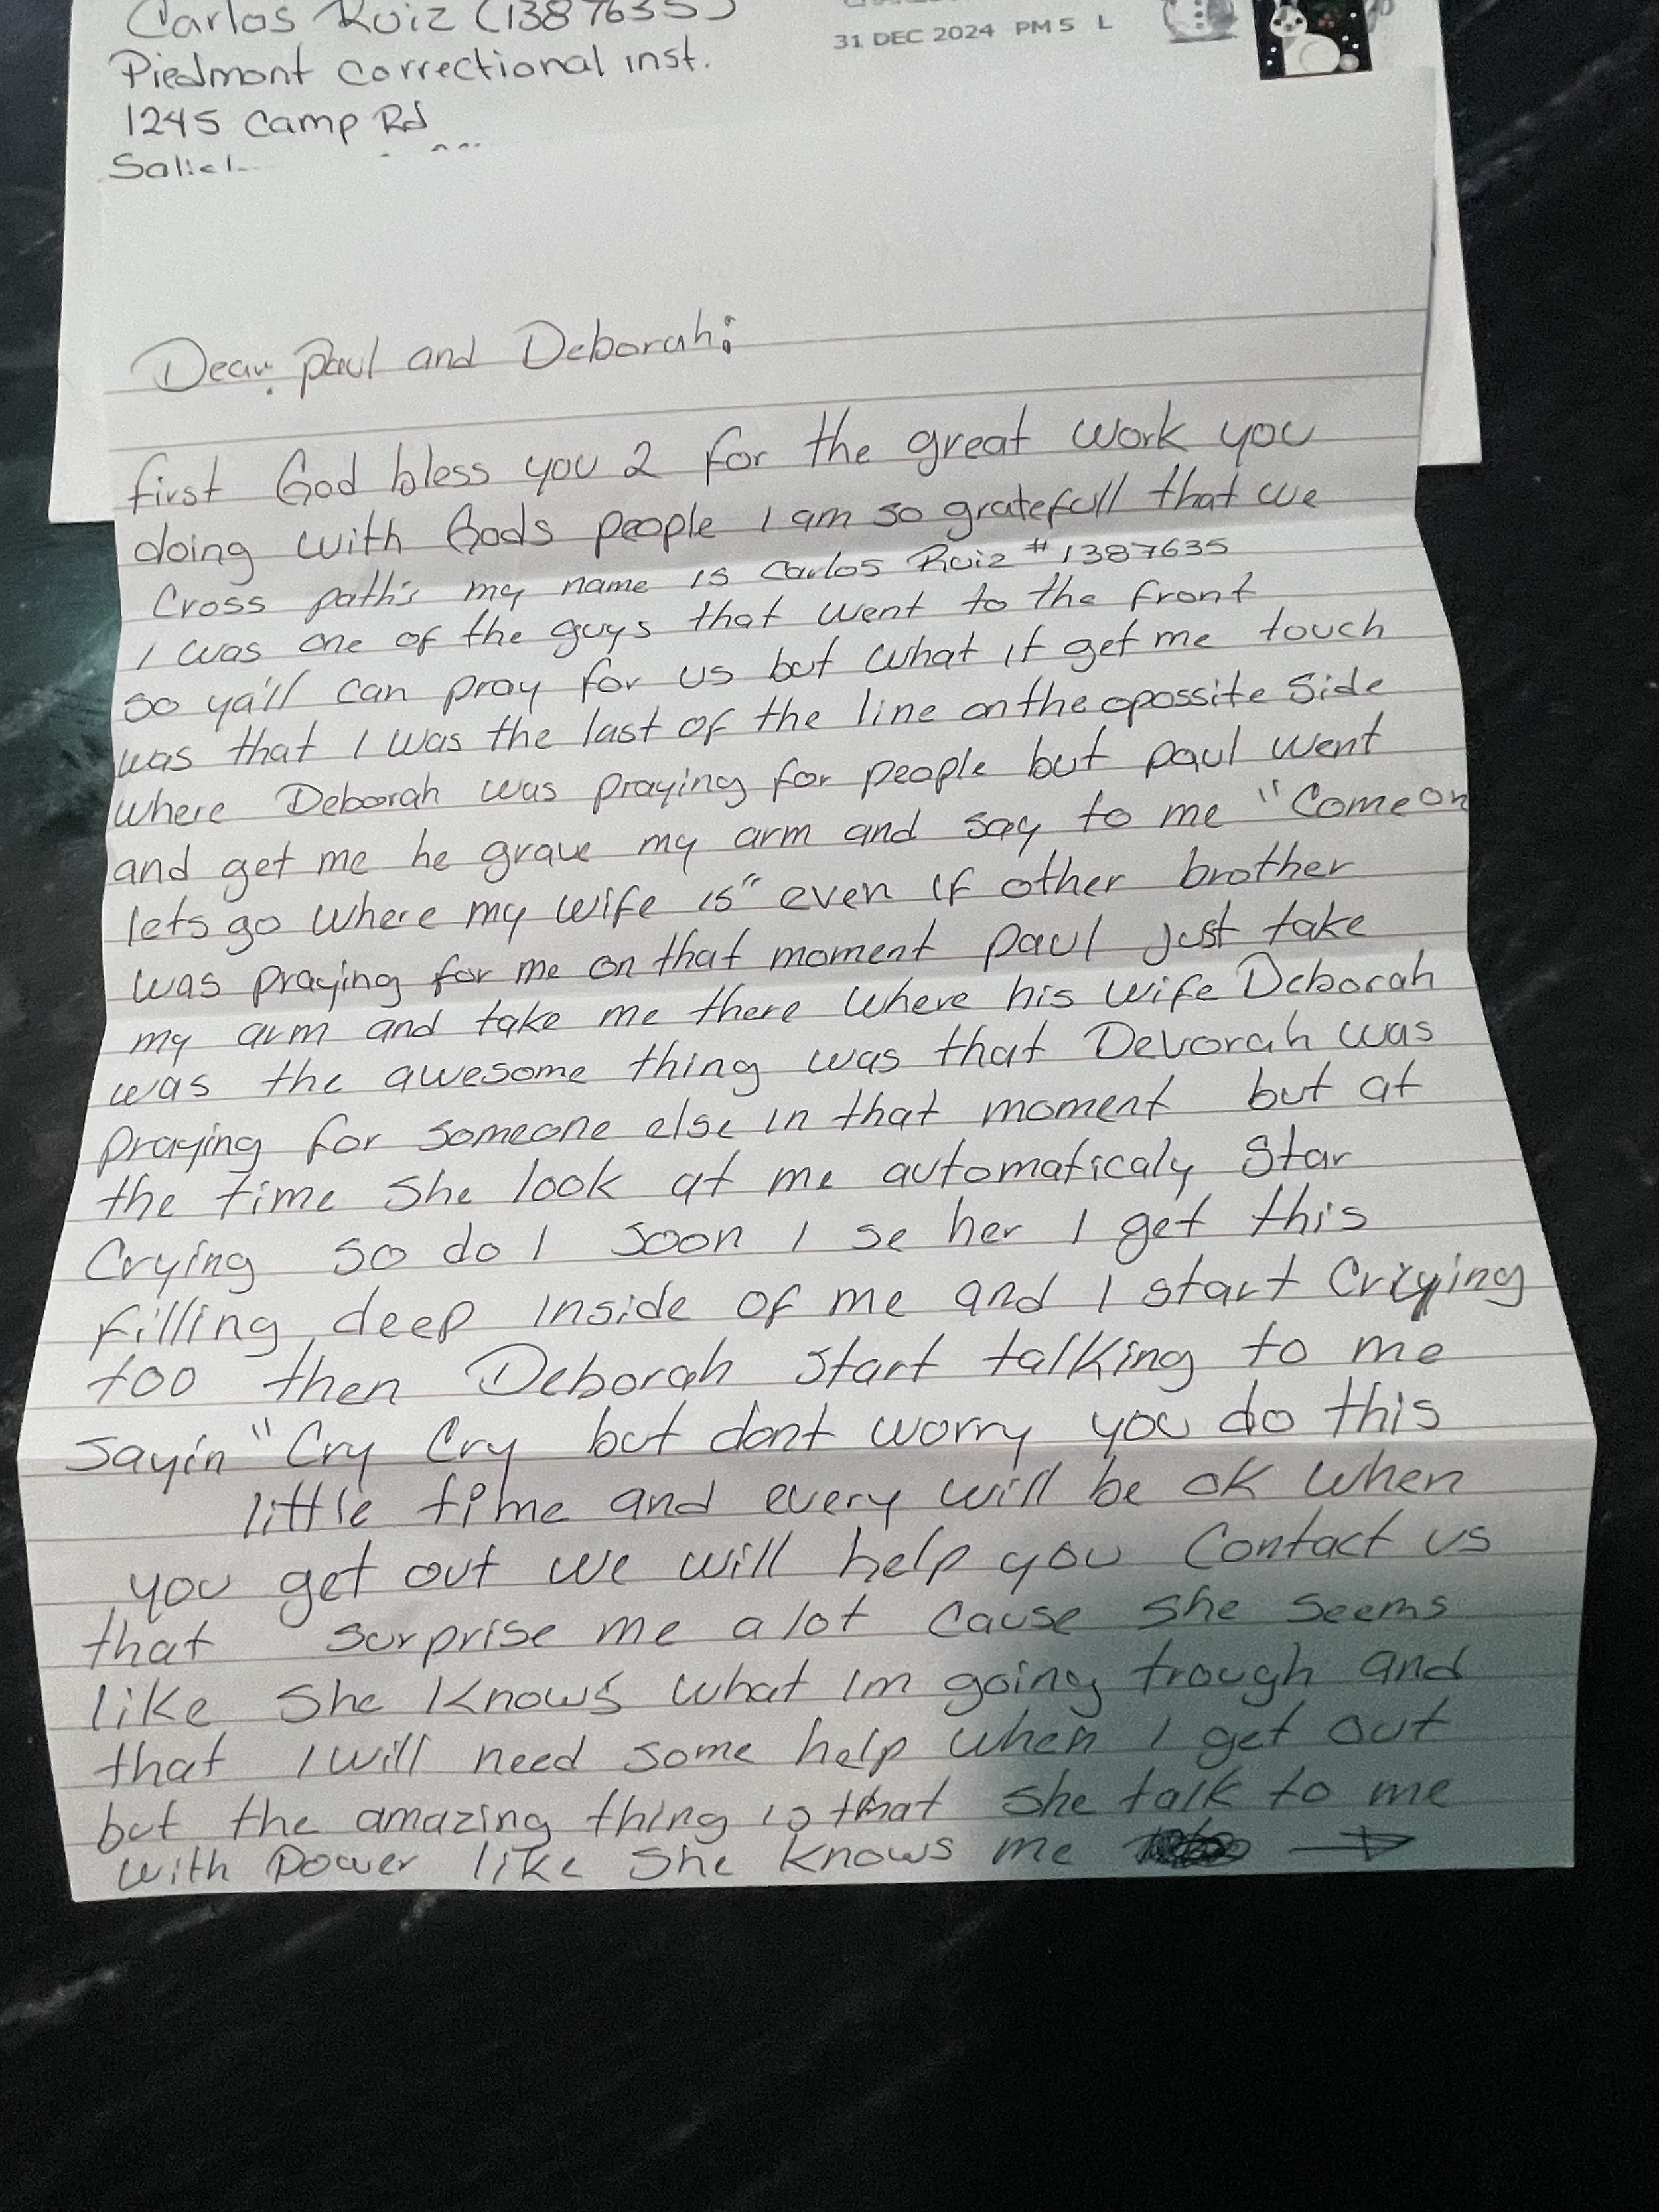 Carlos Ruiz (1387635)
Piedmont Correctional inst.
1245 Camp Rd
31 DEC 2024 PM 5 L
Dear. Paul and Deborah:
first God bless you 2 for the great work you
doing with Gods people I am so gratefull that we
Cross path's my name is Carlos Ruiz #1387635
I was one of the guys that went to the front
so ya'll can pray for us but what it get me touch
was that I was the last of the line on the opossite side
where Deborah was praying for people but Paul went
and get me he grave my arm and say to me "Come on
lets go where my wife is" even if other brother
was praying for me on that moment Paul just take
my arm and take me there where his wife Deborah
was the awesome thing was that Devorah was
praying for someone else in that moment but at
the time she look at me automaticaly Star
Crying so do I soon I se her I get this
filling deep inside of me and I start Criying
too then Deborah start talking to me
Sayin "Cry Cry but dont worry you do this
little time and every will be ok when
you get out we will help you Contact us
that surprise me alot Cause she seems
like she Knows what im going trough and
that I will need some help when I get out
but the amazing thing is that she talk to me
with Power like she Knows me →